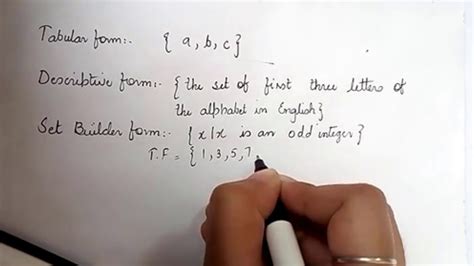 Tabular form:- { a, b, c}
Descriptive form:- {the set of first three letters of
the alphabet in English}
Set Builder form:- {x|x is an odd integer}
T.F = { 1, 3, 5, 7,